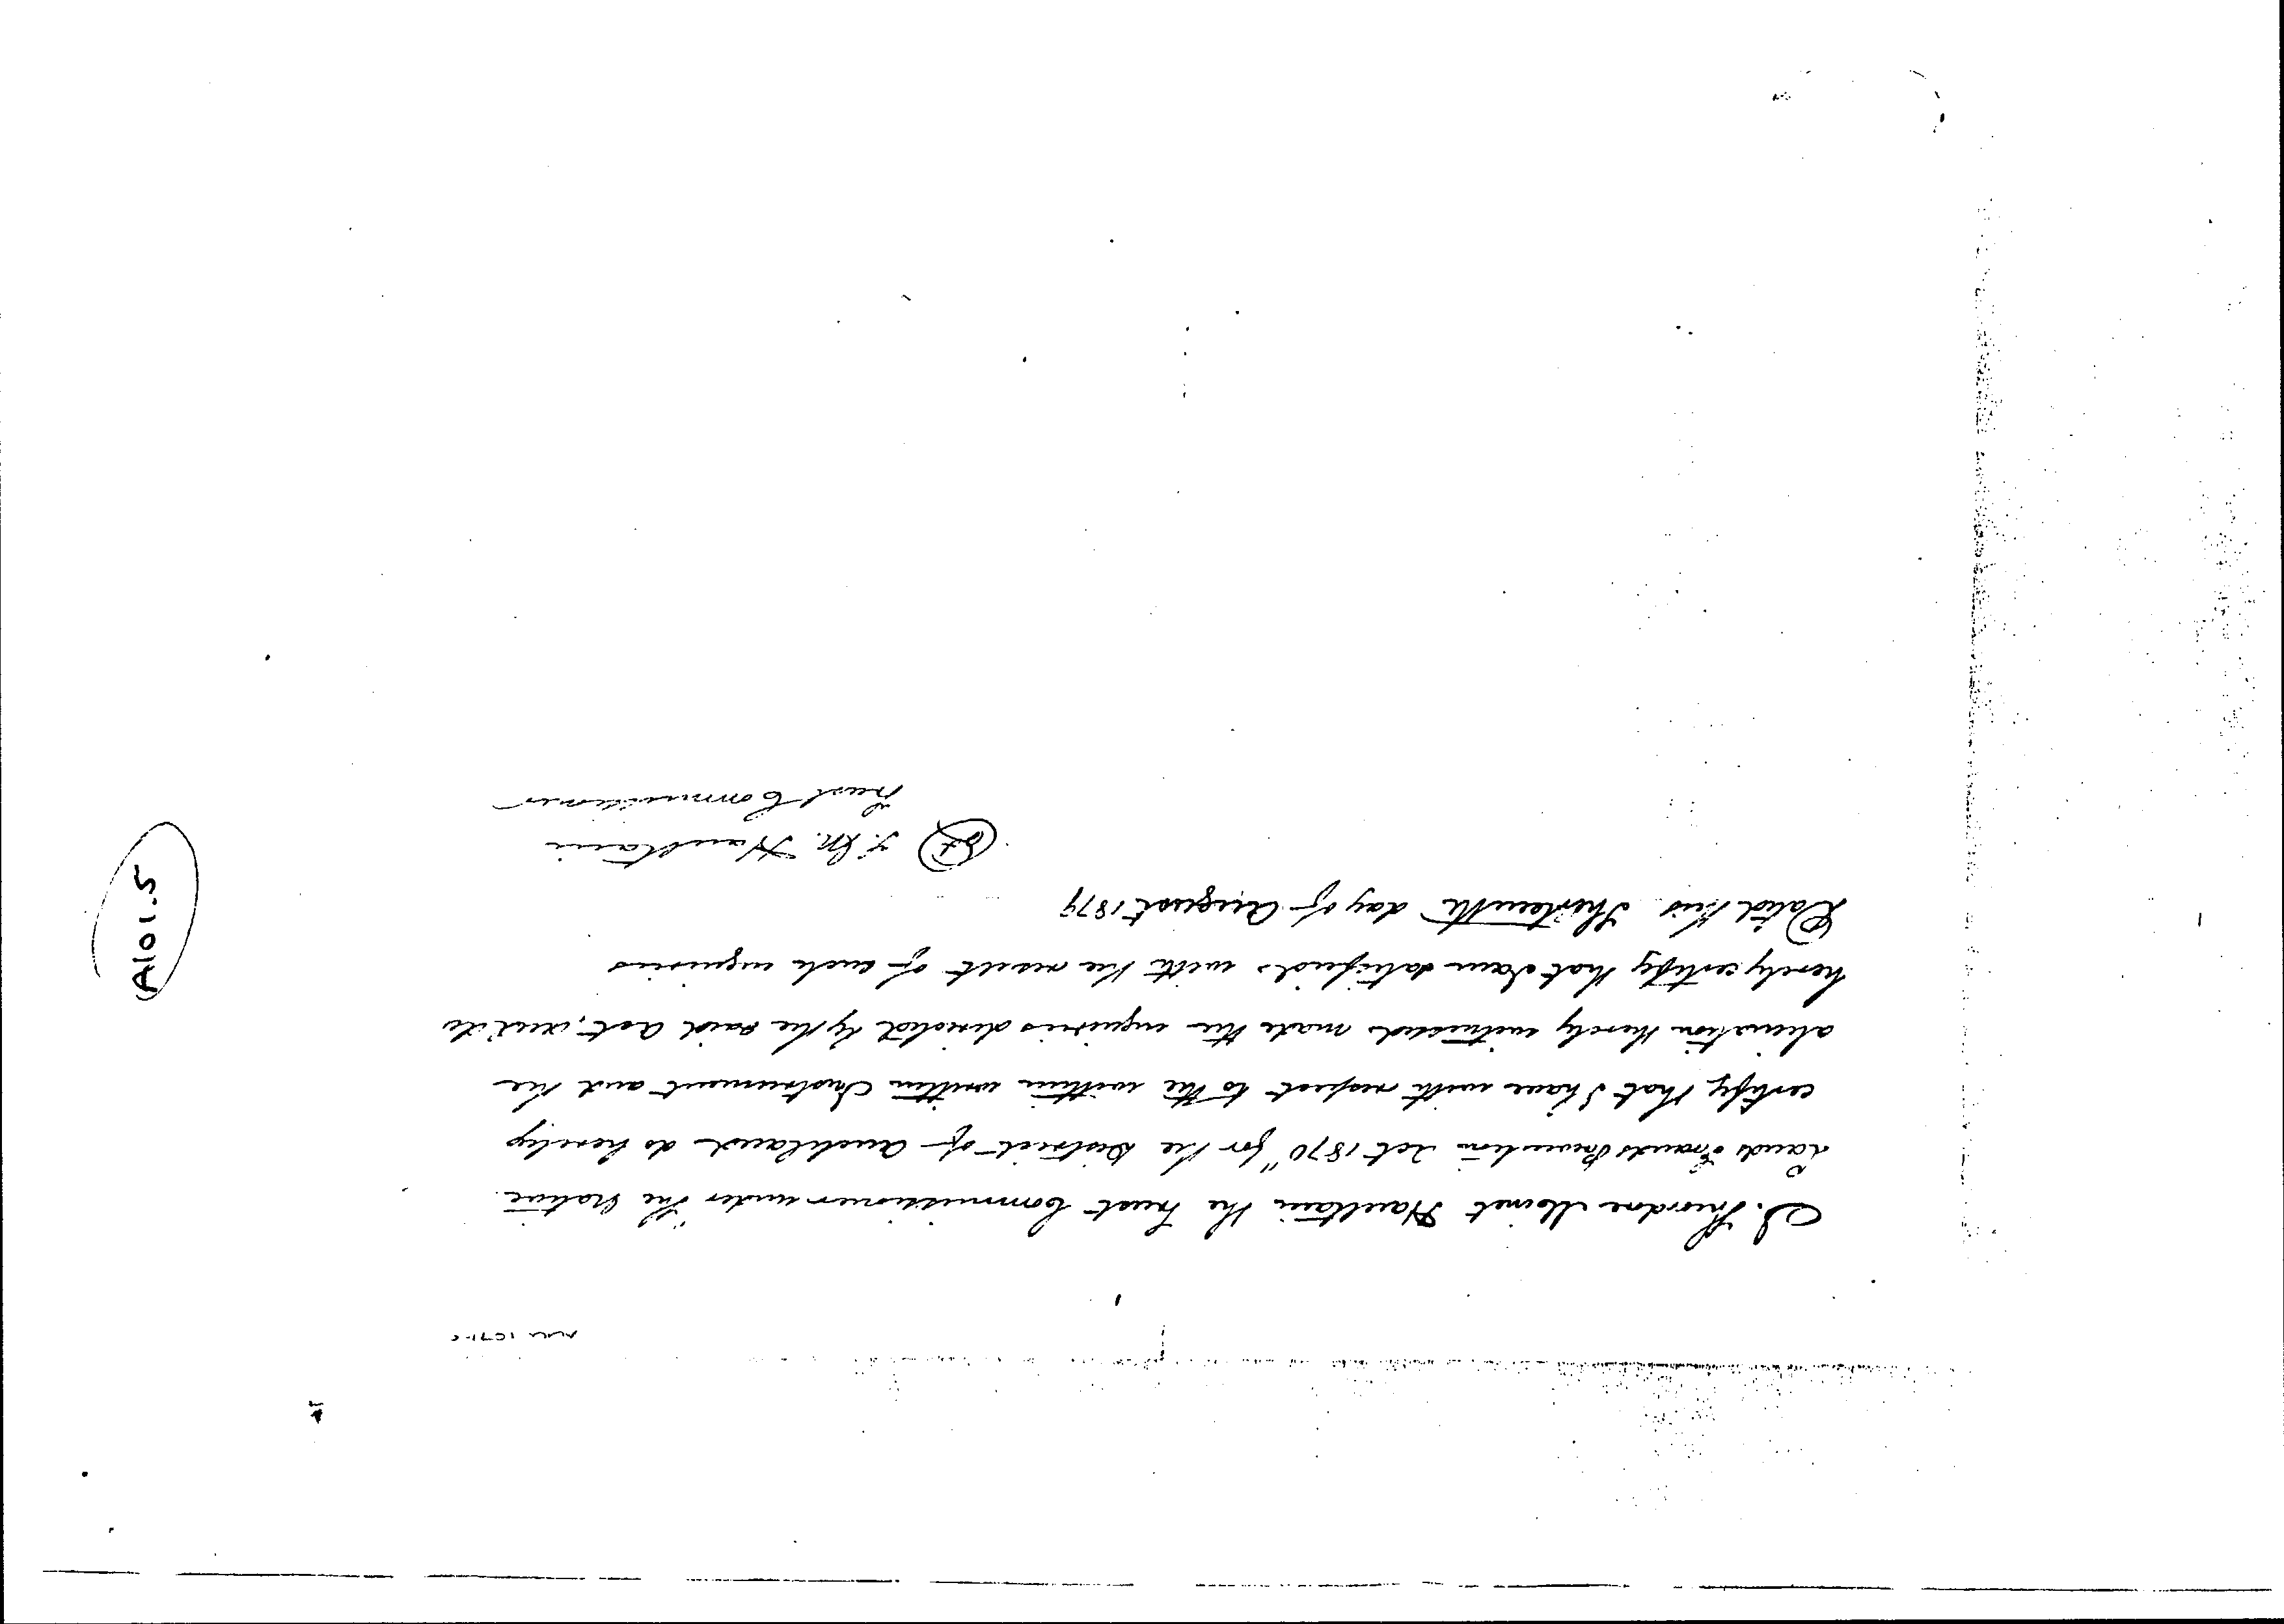 I. Theodore Minet Haultain the Trust Commissioner under the Native
Lands Frauds Prevention Act 1870" for the District of Auckland do hereby
certify that I have with respect to the within written Instrument and the
alienation thereby witnessed made the inquiries directed by the said Act, and do
hereby certify that I am satisfied with the result of such inquiries
Dated this Thirteenth day of August 1879
T. M. Haultain
Trust Commissioner
A101.5